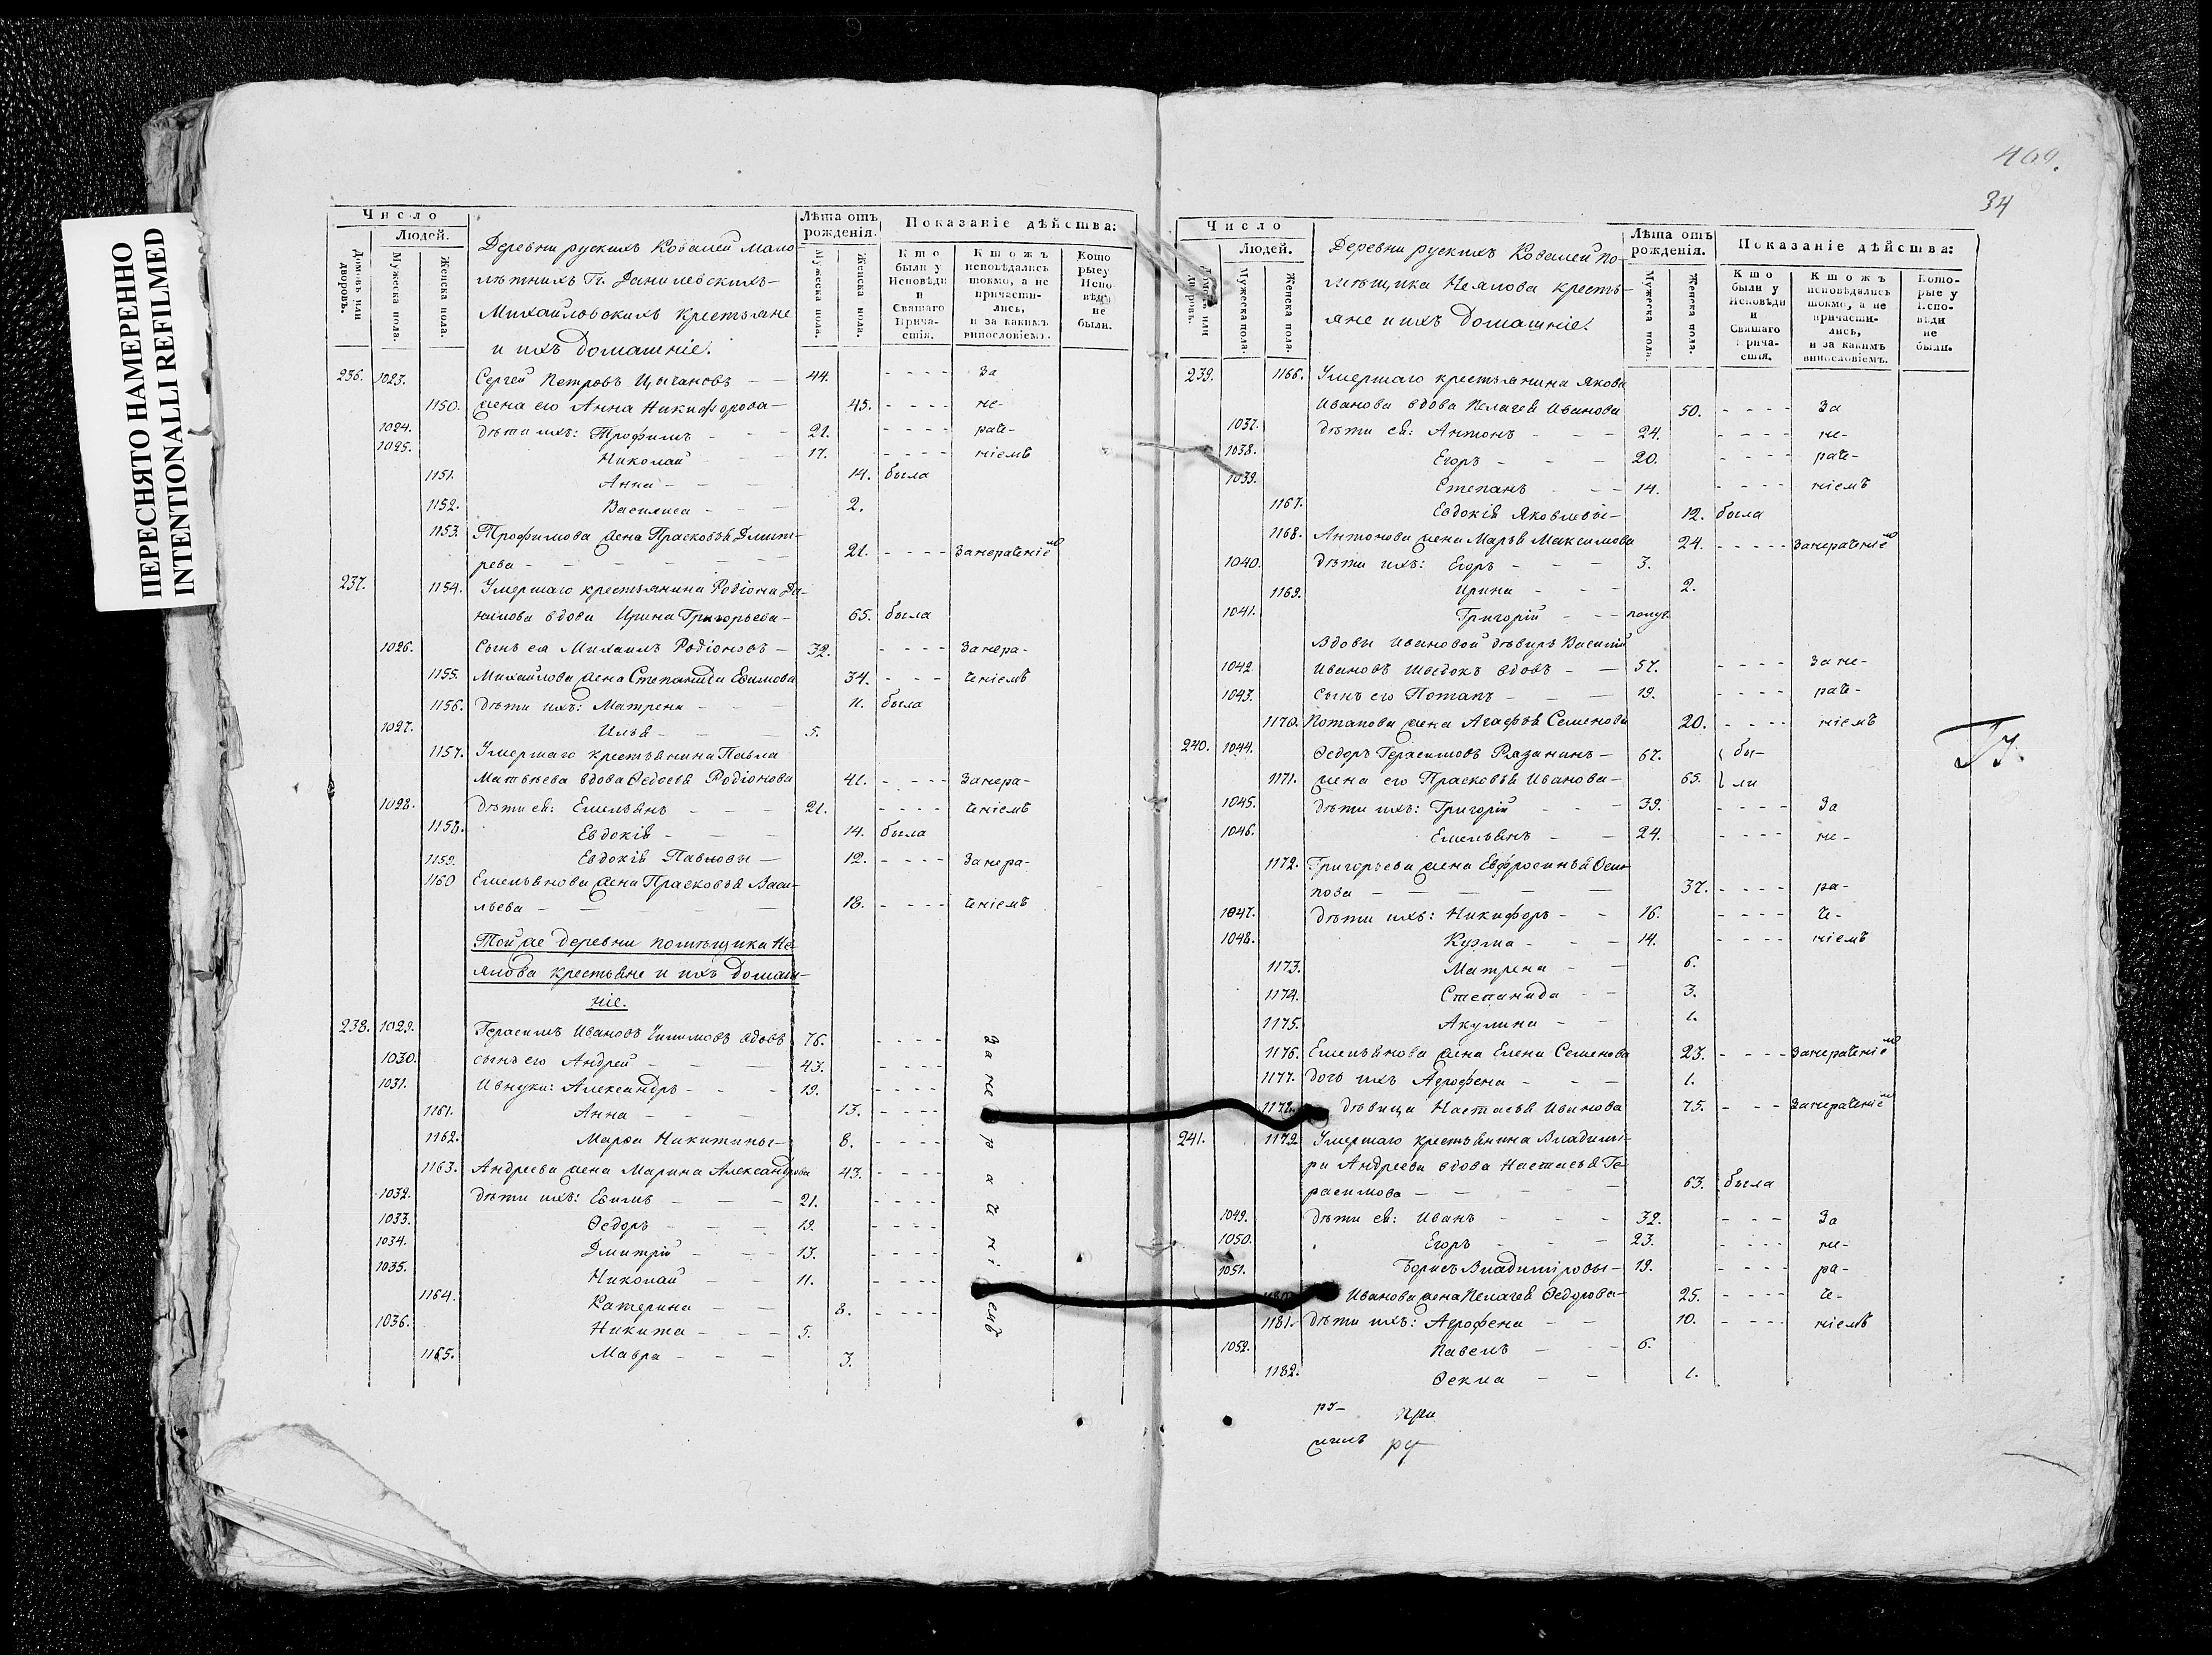 ПЕРЕСНЯТО НАМЕРЕННО
INTENTIONALLI REFILMED
Число
Людей.
Домовъ или дворовъ.
Мужеска пола.
Женска пола.
Деревни рускихъ Ковалей мало-
лѣтнихъ Гг. Данилевскихъ-
Михайловскихъ крестьяне
и ихъ домашніе.
Лѣта отъ рожденія.
Мужеска пола.
Женска пола.
Показаніе дѣйства:
Кто были у Исповѣди и Святаго Причастія.
Ктожъ исповѣдались токмо, а не причастились, и за какимъ винословіемъ.
Которые у Исповѣди не были.
236. 1023. Сергей Петровъ Цыгановъ — 44. - - - - за
1150. жена его Анна Никифорова — 45. - - - - не-
1024. дѣти ихъ: Трофимъ - - - 21. - - - - раче-
1025. Николай - - 17. - - - - ніемъ
1151. Анна - - - 14. была
1152. Василиса - - - 2.
1153. Трофимова жена Прасковья Дмит-
рева - - - - - 21. - - - - занераченіемъ
237. 1154. Умершаго крестьянина Родіона Да-
нилова вдова Ирина Григорьева - 65. была
1026. Сынъ ея Михаилъ Родіоновъ - 32. - - - - занера-
1155. Михайлова жена Степанида Ефимова 34. - - - ченіемъ
1156. дѣти ихъ: Матрена - - - 11. была
1027. Илья - - - 5.
1157. Умершаго крестьянина Павла
Матвѣева вдова Ѳедосья Родіонова 41. - - - - занера-
1028. дѣти ея: Емельянъ - - - 21. - - - - ченіемъ
1158. Евдокія - - - 14. была
1159. Евдокія Павловы - 12. - - - - занера-
1160 Емельянова жена Прасковья Васи-
льева - - - - 18. - - - - ченіемъ
Той же деревни помѣщика Не-
ялова крестьяне и ихъ домаш-
ніе.
238. 1029. Герасимъ Ивановъ вдовъ 76. - - - -
1030. сынъ его Андрей - - - 43. - - - -
1031. Ивнуки: Александръ - - - 19. - - - -
1161. Анна - - - 13. - - - -
1162. Марѳа Никитины - 8. - - - -
1163. Андреева жена Марина Александрова 43. - - - -
1032. дѣти ихъ: Ефимъ - - - 21. - - - -
1033. Ѳедоръ - - - 19. - - - -
1034. Дмитрій - - - 13. - - - -
1035. Николай - - 11. - - - -
1164. Катерина - - 8. - - - -
1036. Никита - - - 5.
1165. Мавра - - - 3.
занераченіемъ
409.
34
Число
Людей.
Домовъ или дворовъ.
Мужеска пола.
Женска пола.
Деревни рускихъ Ковалей по-
мѣщика Неялова кресть-
яне и ихъ домашніе.
Лѣта отъ рожденія.
Мужеска пола.
Женска пола.
Показаніе дѣйства:
Кто были у Исповѣди и Святаго Причастія.
Ктожъ исповѣдались токмо, а не причастились, и за какимъ винословіемъ.
Которые у Исповѣди не были.
239. 1166. Умершаго крестьянина Якова
Иванова вдова Пелагея Иванова 50. - - - - за
1037. дѣти ея: Антонъ - - - 24. - - - - не-
1038. Егоръ - - - 20. - - - - раче-
1039. Степанъ - - - 14. - - - - ніемъ
1167. Евдокія Яковлевы - 12. была
1168. Антонова жена Марья Максимова 24. - - - - занераченіемъ
1040. дѣти ихъ: Егоръ - - - 3.
1169. Ирина - - - 2.
1041. Григорій - - полуг.
Вдовы Ивановой дѣверь Василій
1042 Ивановъ вдовъ - - 57. - - - - зане-
1043. сынъ его Потапъ - - - 19. - - - - раче-
1170. Потапова жена Агафья Семенова 20. - - - - ніемъ
240. 1044. Ѳедоръ Герасимовъ Разанинъ - 67. бы-
1171. жена его Прасковья Иванова - 65. ли
1045. дѣти ихъ: Григорій - - - 39. - - - - за
1046. Емельянъ - - 24. - - - - не-
1172. Григорьева жена Евфросинья Оси-
пова - - - - - 37. - - - - ра-
1047. дѣти ихъ: Никифоръ - - 16. - - - - че-
1048. Кузма - - - 14. - - - - ніемъ
1173. Матрена - - 6.
1174. Степанида - - 3.
1175. Акулина - - 1.
1176. Емельянова жена Елена Семенова 23. - - - - занераченіемъ
1177. дочь ихъ Агрофена - - - 1.
1178. дѣвица Настасья Иванова 75. - - - занераченіемъ
241. 1179 Умершаго крестьянина Владими-
ра Андреева вдова Настасья Ге-
расимова - - - - - 63. была
1049. дѣти ея: Иванъ - - - 32. - - - за
1050. Егоръ - - - 23. - - - - не-
1051. Борисъ Владиміровы - 19. - - - - ра-
Иванова жена Пелагея Ѳедорова - 25. - - - - че-
1181. дѣти ихъ: Агрофена - - 10. - - - - ніемъ
1052. Павелъ - - - 6.
1182. Ѳекла - - 1.
при
ру